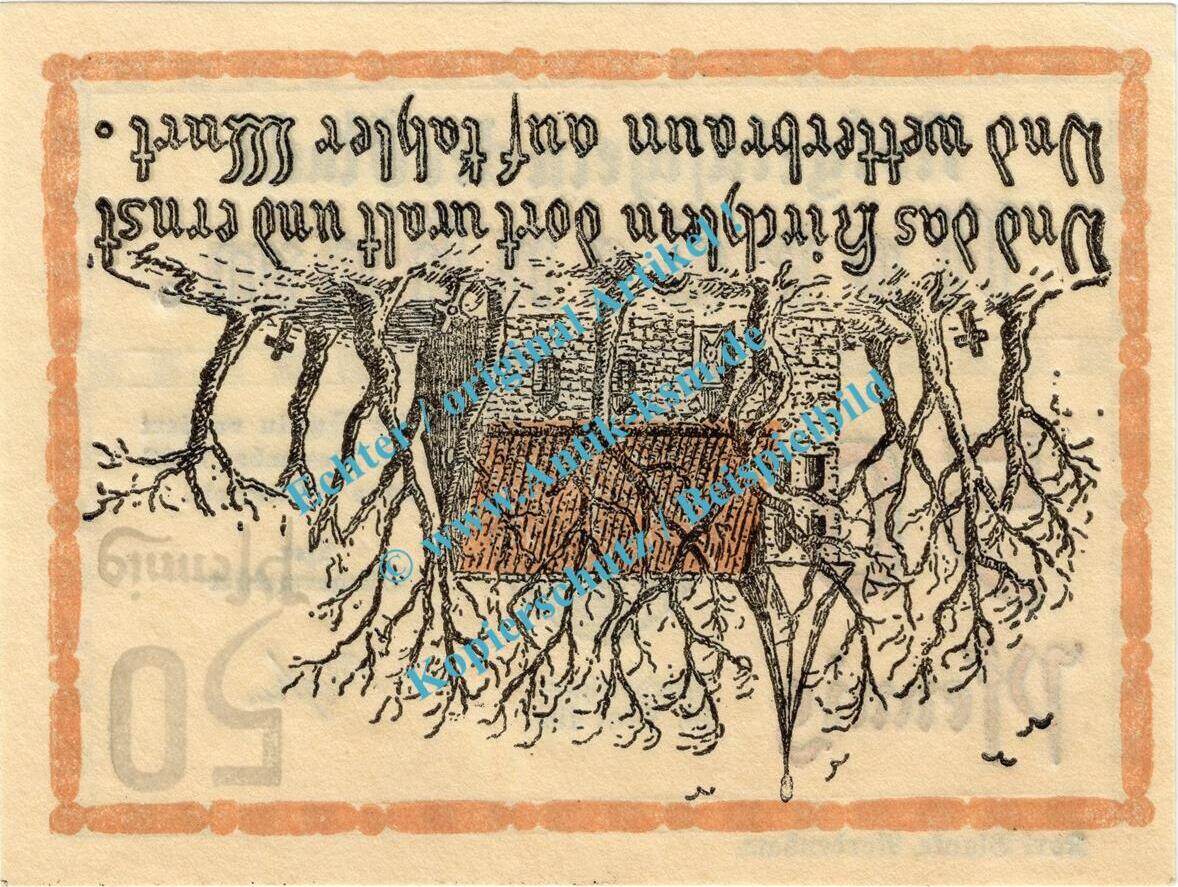 Und das Kirchlein dort uralt und ernst
Und wetterbraun auf kahler Wurt.
Echter / original Artikel !
© www.Antik-ksm.de
Kopierschutz / Beispielbild